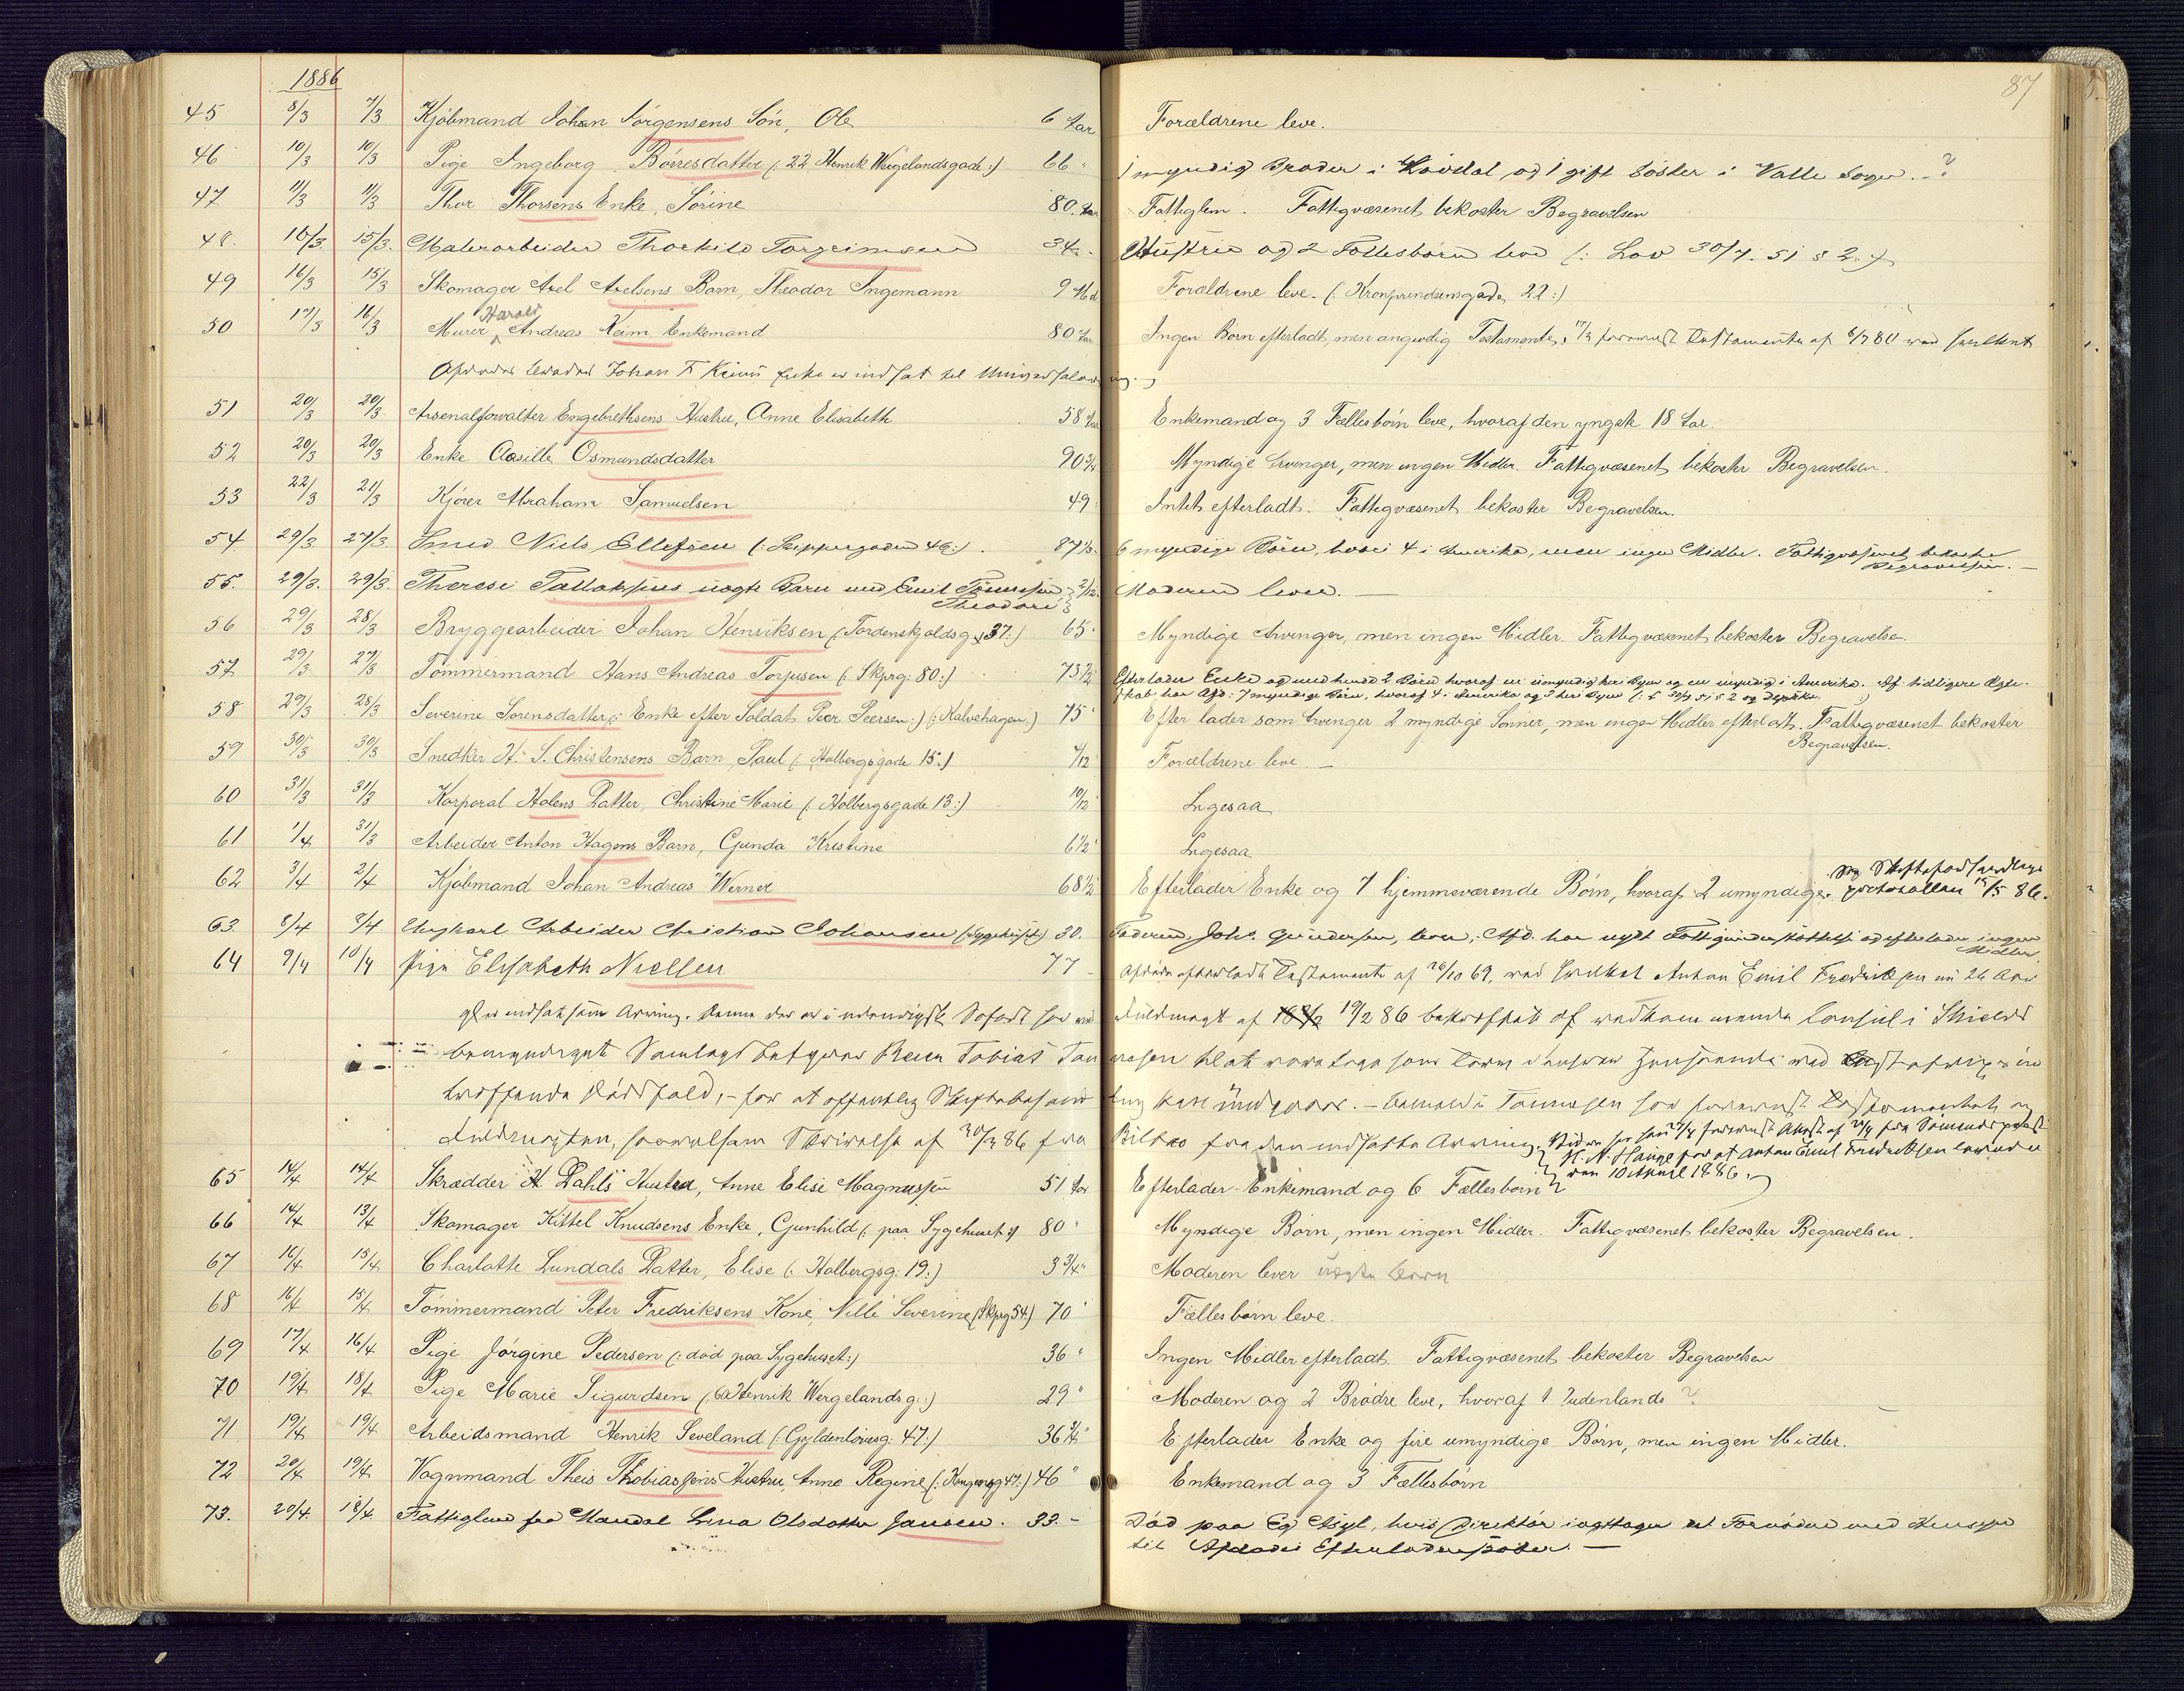 1886
87
45 8/3 7/3 Kjøbmand Johan Jørgensens Søn, Ole 6 Aar Forældrene leve.
46 10/3 10/3 Pige Ingeborg Børresdatter (: 22 Henrik Wergelandsgade :) 66 " 1 myndig Broder i og 1 gift Søster i Valle Sogn. - ?
47 11/3 11/3 Thor Thorsens Enke, Sørine 80 Aar Fattiglem. Fattigvæsenet bekoster Begravelsen
48. 16/3 15/3. Malerarbeider Thorkild Torgrimsen Hustru og 2 Fællesbørn leve (: Lov 30/7. 51 § 2. :)
49 16/3 15/3 Skomager Axel Axelsens Barn, Theodor Ingemann 9 Md Forældrene leve. (: Kronprindsensgade 22 :)
Harald
50 17/3 16/3 Murer, Andreas Keim Enkemand 80 Aar Ingen Børn efterladt, men angivelig Testamente. 17/3 Testamente af 6/7 80 ved hvilket
Afdødes Johan F Keims Enke er indsat til Universalarving. :)
51 20/3 20/3 Arsenalforvalter Engebrethsens Hustru, Anne Elisabeth 58 Aar Enkemand og 3 Fællesbørn leve, hvoraf den yngste 18 Aar.
52 20/3 20/3 Enke Aasille Osmundsdatter 90 3/4 Myndige Arvinger, men ingen Midler. Fattigvæsenet bekoster Begravelsen.
53 22/3 21/3 Kjører Abraham Samuelsen 49 Intet efterladt. Fattigvæsenet bekoster Begravelsen.
54 29/3 27/3 Smed Niels Ellefsen (: Skippergaden 46 :). 87 1/2. 6 myndige Børn, hvori 4 i Amerika, men ingen Midler. Fattigvæsenet bekoster
Begravelsen. -
55. 29/3. 29/3. Therese Tallaksens uægte Barn med Emil Tønnessen 2/12. Moderen lever. -
Theodore
56 29/3 28/3 Bryggearbeider Johan Henriksen (: Tordenskjoldsg. 37 :) 65 " Myndige Arvinger, men ingen Midler. Fattigvæsenet bekoster Begravelsen.
57 29/3 27/3 Tømmermand Hans Andreas Torjusen (: Skprg: 80 :) 73 1/2 Efterlader Enke og med hende 2 Børn hvoraf en umyndig her i Byen og en myndig i Amerika. Af tidligere Ægte-
skab har Afd: 7 myndige Børn, hvoraf 4 i Amerika og 3 her i Byen (: L 30/7 51 § 2 og
58 29/3 28/3 Severine Sørensdatter (: Enke efter Soldat Peer Peersen :) (: Kalvehagen :) 75 " Efterlader som Arvinger 2 myndige Sønner, men ingen Midler efterladt. Fattigvæsenet bekoster
Begravelsen.
59 30/3 30/3 Snedker H. S. Christensens Barn, Paul (: Holbergsgade 15 :) 7/12 Forældrene leve. -
60 31/3 31/3 Korporal Holens Datter, Christine Marie (: Holbergsgade 13 :) 10/12 Ligesaa
61 1/4 31/3 Arbeider Anton Hagens Barn, Gunda Kristine 6 1/2 " Ligesaa
62 3/4 2/4 Kjøbmand Johan Andreas Werner 68 1/2 Efterlader Enke og 7 hjemmeværende Børn, hvoraf 2 umyndige. Se Skifteforhandlings
protocollen 15/5 86.
63. 8/4 8/4 Ungkarl Arbeider Christian Johansen (Sygehuset) 30. Faderen, Joh. Gundersen, lever; Afd. har nydt Fattigunderstøttelse og efterlader ingen
Midler.
64 9/4 10/4 Pige Elisabeth Nielsen 77 - Afdøde efterladt Testamente af 26/10 69, ved hvilket Anton Emil Fredriksen nu 26 Aar
gl. er indsat som Arving. Denne der er i udenrigsk Søfart har ved Fuldmagt af 19/2 86 bekræftet af vedkommende Consul i Shields
bemyndiget Tobias Tønnesen til at varetage hans Tarv ved
indtræffende Dødsfald, - for at offentlig Skiftebehandling kan undgaaes. - Tønnesen har Testamentet og
Fuldmagten, saavelsom Skrivelse af 30/3 86 fra Bilbao fra den indsatte Arving. Attest af
H. N. Hauge for at Anton Emil Fredriksen levede
den 10 April 1886. :)
65 14/4 14/4 Skrædder H Dahls Hustru, Anne Elise Magnussen 51 Aar Efterlader Enkemand og 6 Fællesbørn
66 14/4 13/4 Skomager Kittel Knudsens Enke, Gunhild (: paa Sygehuset :) 80 " Myndige Børn, men ingen Midler. Fattigvæsenet bekoster Begravelsen.
67 16/4 15/4 Charlotte Lundals Datter, Elise (: Holbergsg: 19 :) 3 3/4 " Moderen lever uægte Barn
68 16/4 15/4 Tømmermand Peter Fredriksens Kone, Nilli Severine (Skprg 54) 70 " Fællesbørn leve.
69 17/4 16/4 Pige Jørgine Pedersen (: død paa Sygehuset :) 36 " Ingen Midler efterladt. Fattigvæsenet bekoster Begravelsen
70 19/4 18/4 Pige Marie Sigurdsen (: Henrik Wergelandsg :) 29 " Moderen og 2 Brødre leve, hvoraf 1 udenlands ?
71 19/4 19/4 Arbeidsmand Henrik Seveland (: Gyldenløvesg: 47 :) 36 3/4 " Efterlader Enke og fire umyndige Børn, men ingen Midler.
72 20/4 19/4 Vognmand Theis Thobiassens Hustru, Anne Regine (: Kongensg 47 :) 46 " Enkemand og 3 Fællesbørn
73. 20/4 18/4. Fattiglem fra Mandal Lina Olsdatter Jansen. 33. - Død paa Eg Asyl, hvis Direktør iagttager det Fornødne med Hensyn
til Afdødes Efterladenskaber. -